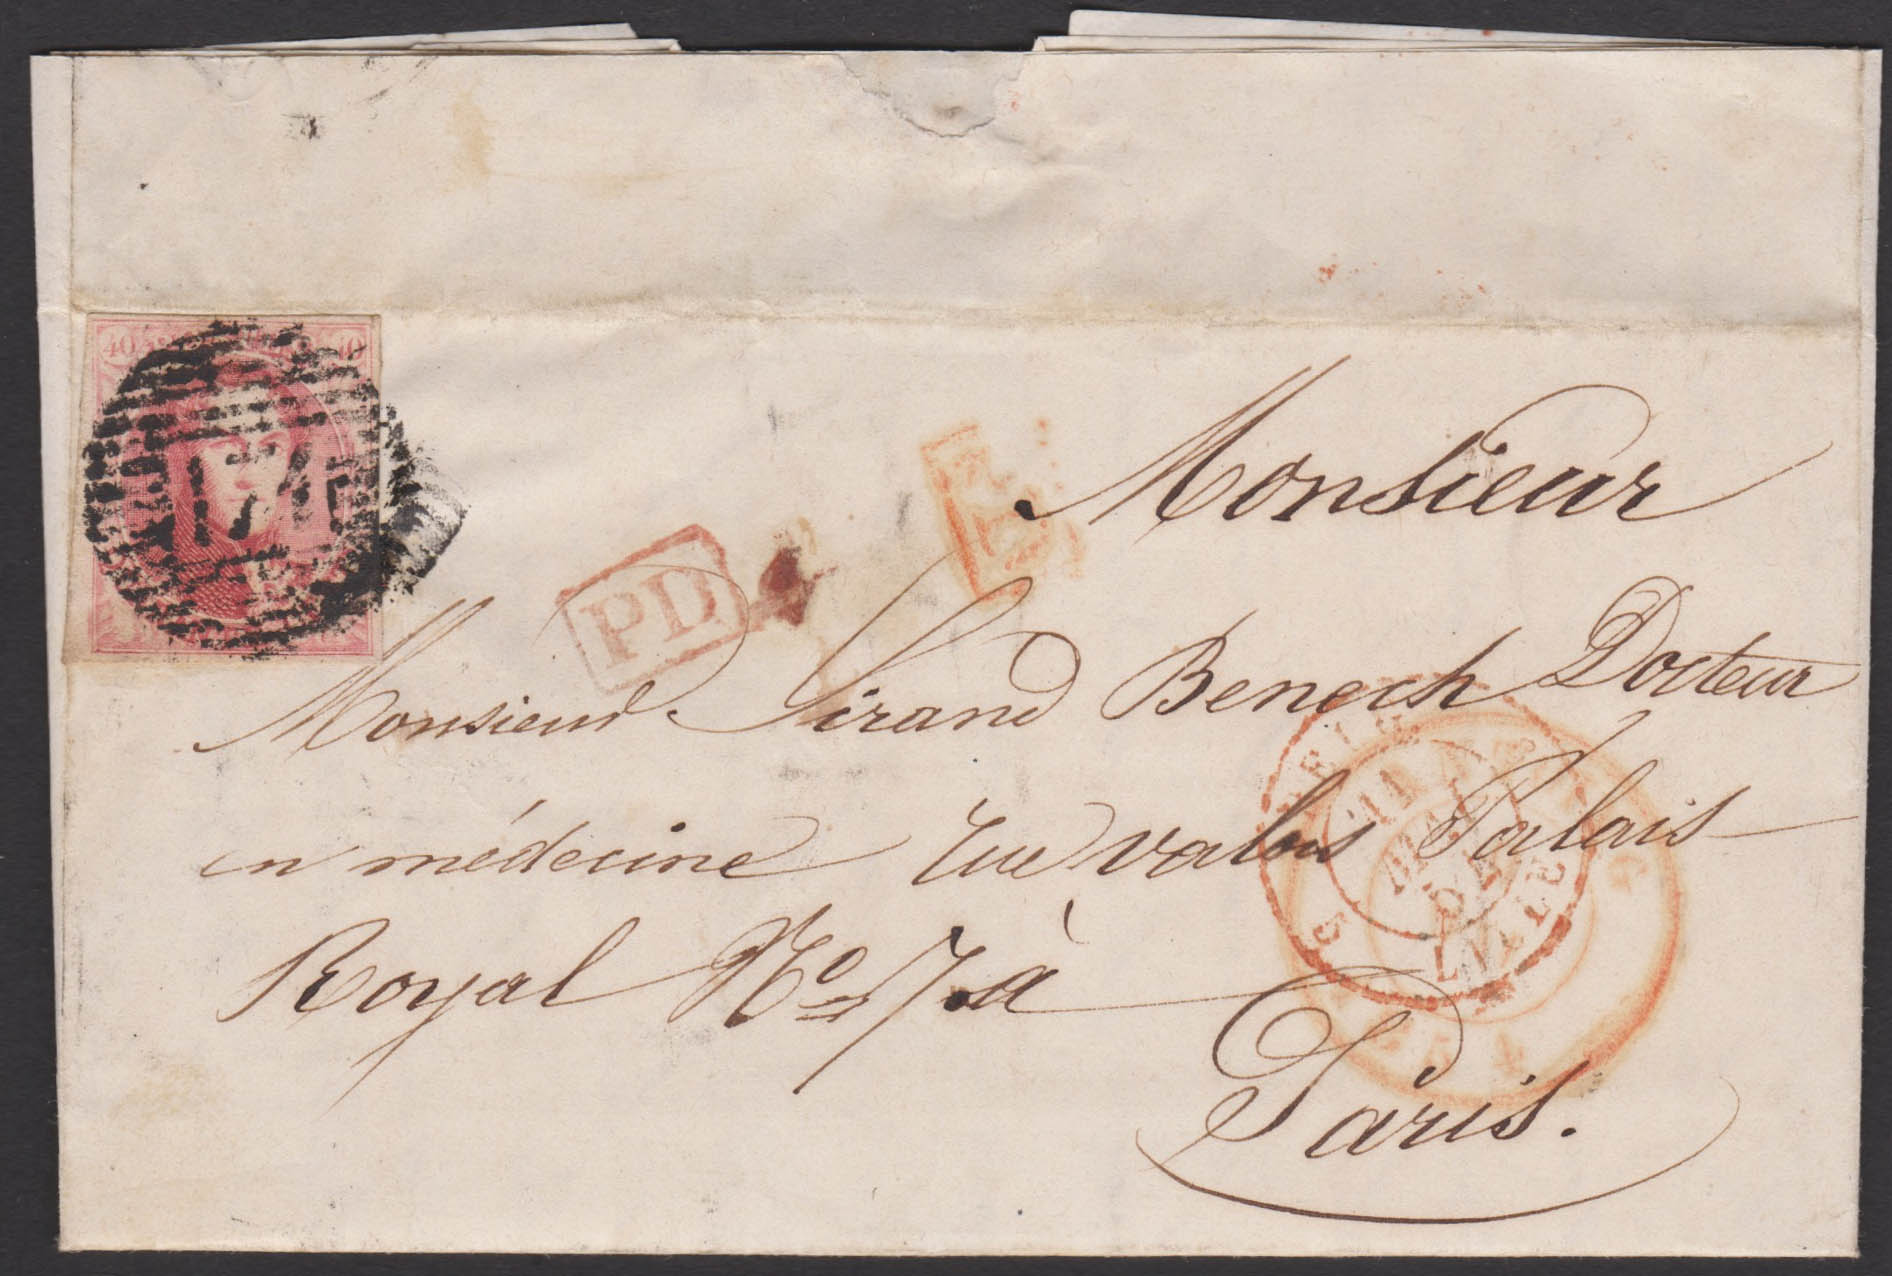 40 40
174
PD
Monsieur
Monsieur Girand Benech Docteur
en médecine rue valois Palais
Royal No 7. à
Paris.
BELG. 11 51 LILLE